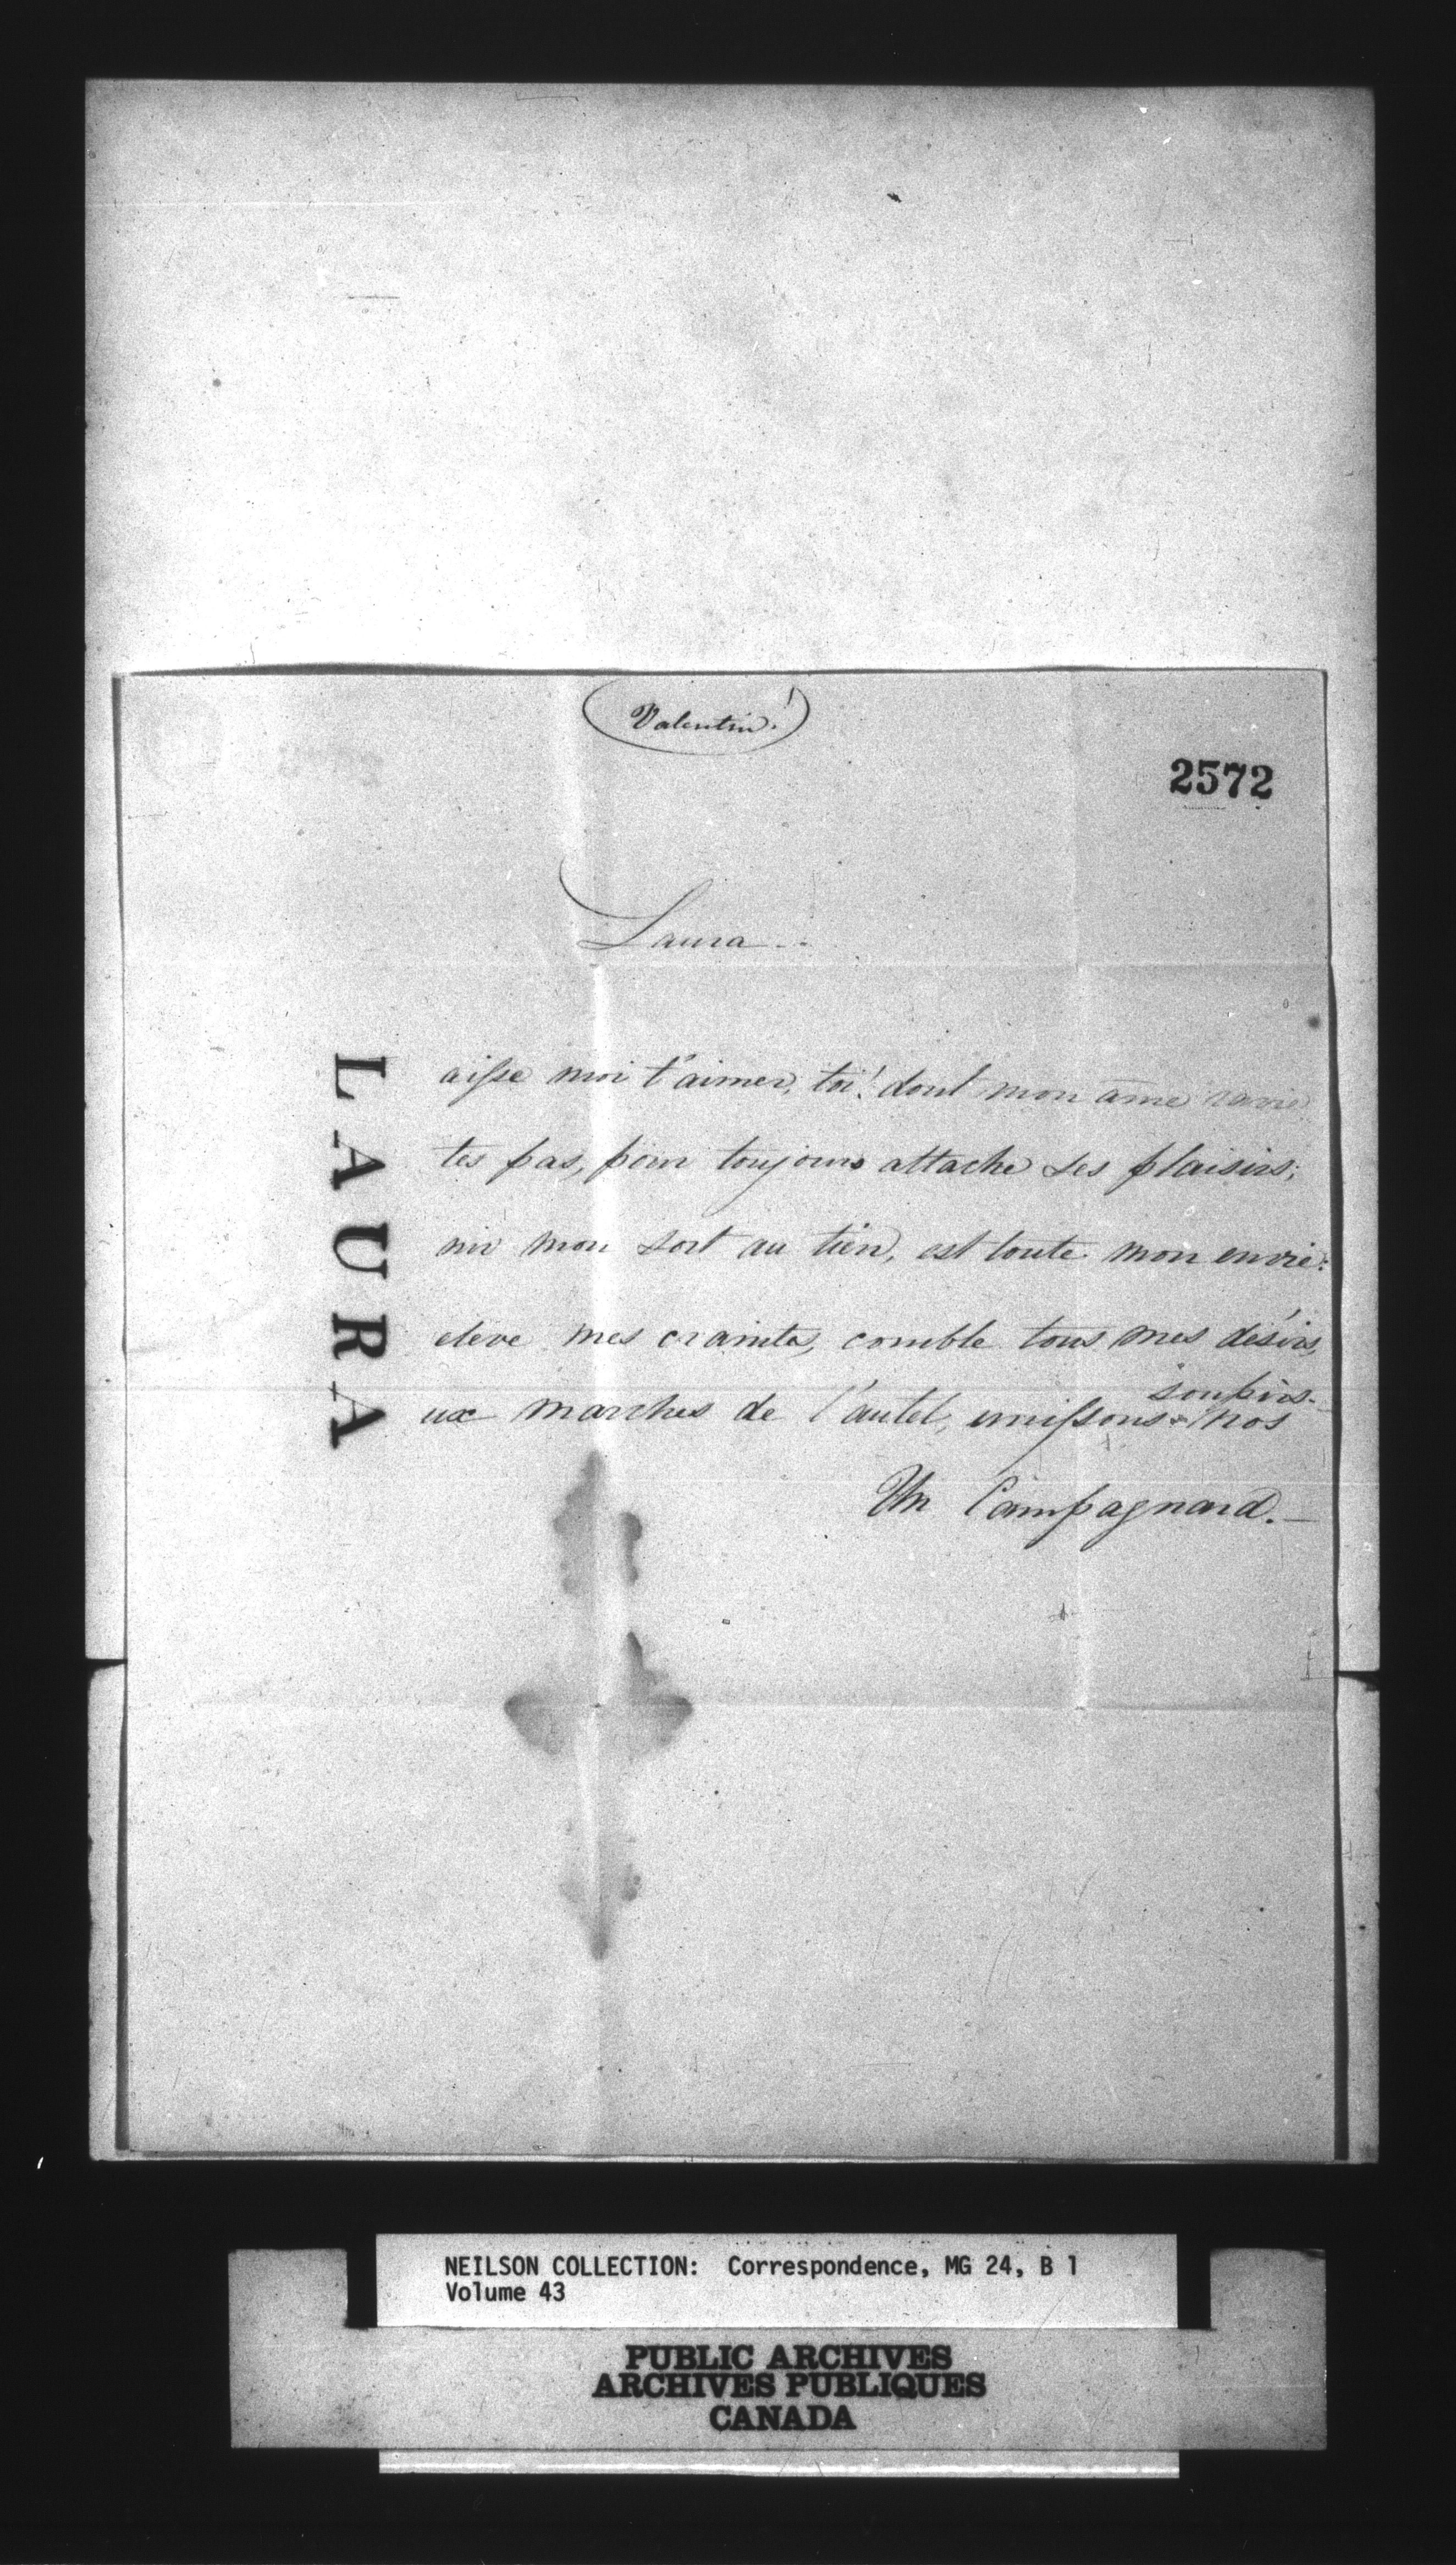 Valentin!
2572
Laura...
L aisse moi t'aimer, toi! dont mon âme ravie
A tes pas, pour toujours attache ses plaisirs;
U nir mon sort au tien, est toute mon envie:
R eleve mes craintes, comble tous mes désirs,
A ux marches de l'autel, unissons nos soupirs.
Un Campagnard.
NEILSON COLLECTION: Correspondence, MG 24, B 1
Volume 43
PUBLIC ARCHIVES
ARCHIVES PUBLIQUES
CANADA